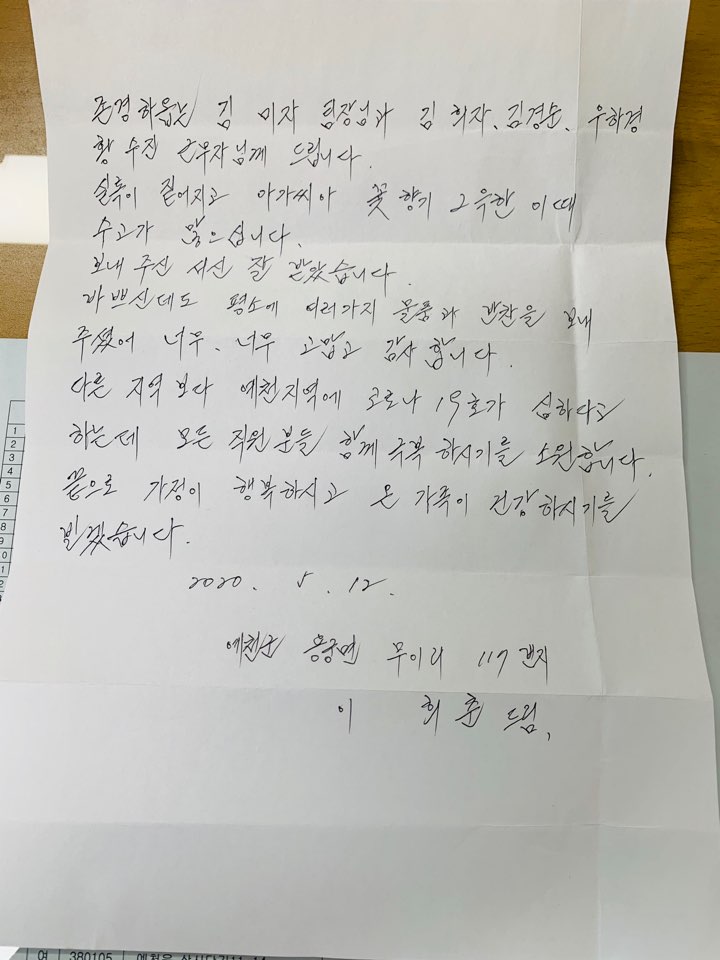 존경하옵는 김 미자 팀장님과 김 희자、김경순、우하경
황 수진 근무자님께 드립니다.
실록이 짙어지고 아가씨아 꽃 향기 그윽한 이때
수고가 많으십니다.
보내 주신 서신 잘 받았습니다.
바쁘신데도 평소에 여러가지 물품과 반찬을 보내
주셨어 너무、너무 고맙고 감사 합니다.
다른 지역 보다 예천지역에 코로나 19호가 심하다고
하는데 모든 직원 분들 함께 극복 하시기를 소원합니다.
끝으로 가정이 행복하시고 온 가족이 건강하시기를
빌겠습니다.
2020. 5. 12.
예천군 용궁면 무이리 117 번지
이 희 춘 드림、
1
2
3
4
5
6
7
8
9
0
1
2
여 380105 예천읍